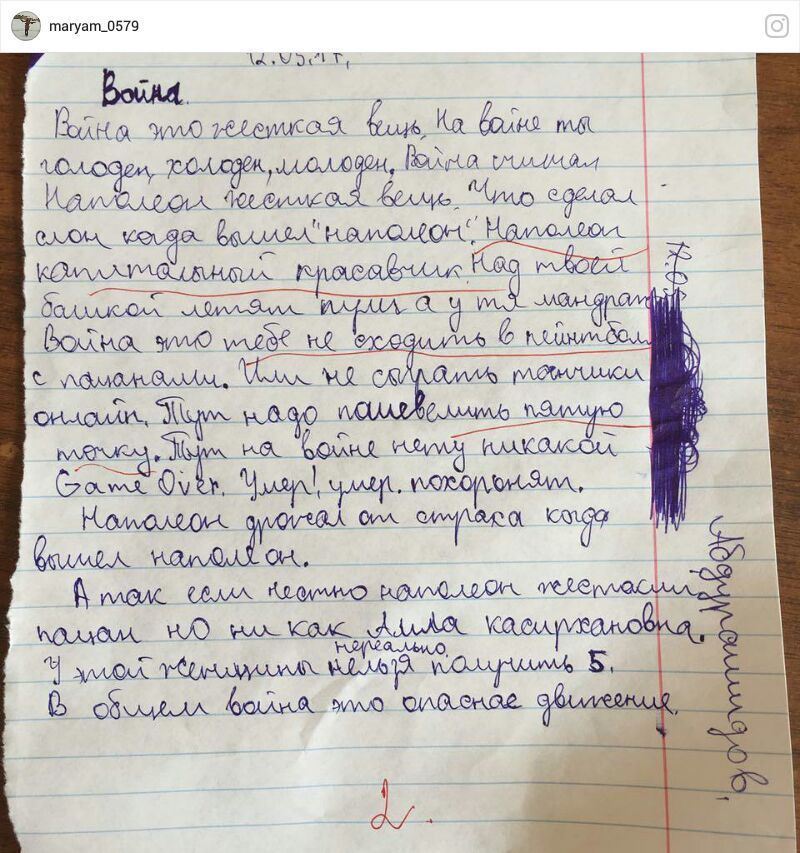 maryam_0579
Война.
Война это жесткая вещь. На войне ты
голоден, холоден, молоден. Война считал
Наполеон жесткая вещь. Что сделал
слон когда вышел "наполеон". Наполеон
капитальный красавчик. Над твоей
башкой летят пули а у тя мандраж
Война это тебе не сходить в пейнтбол
с пацанами. Или не сыграть танчики
онлайн. Тут надо пашевелить пятую
точку. Тут на войне нету никакой
Game Over. Умер! умер. похоронят.
Наполеон дрожал от страха когда
вышел наполеон.
А так если честно наполеон жестасли
пацан но ни как Алла касирхановна.
нереально
У этой женщины нельзя получить 5.
В общем война это опаснае движение.
Абдурашидов.
2.